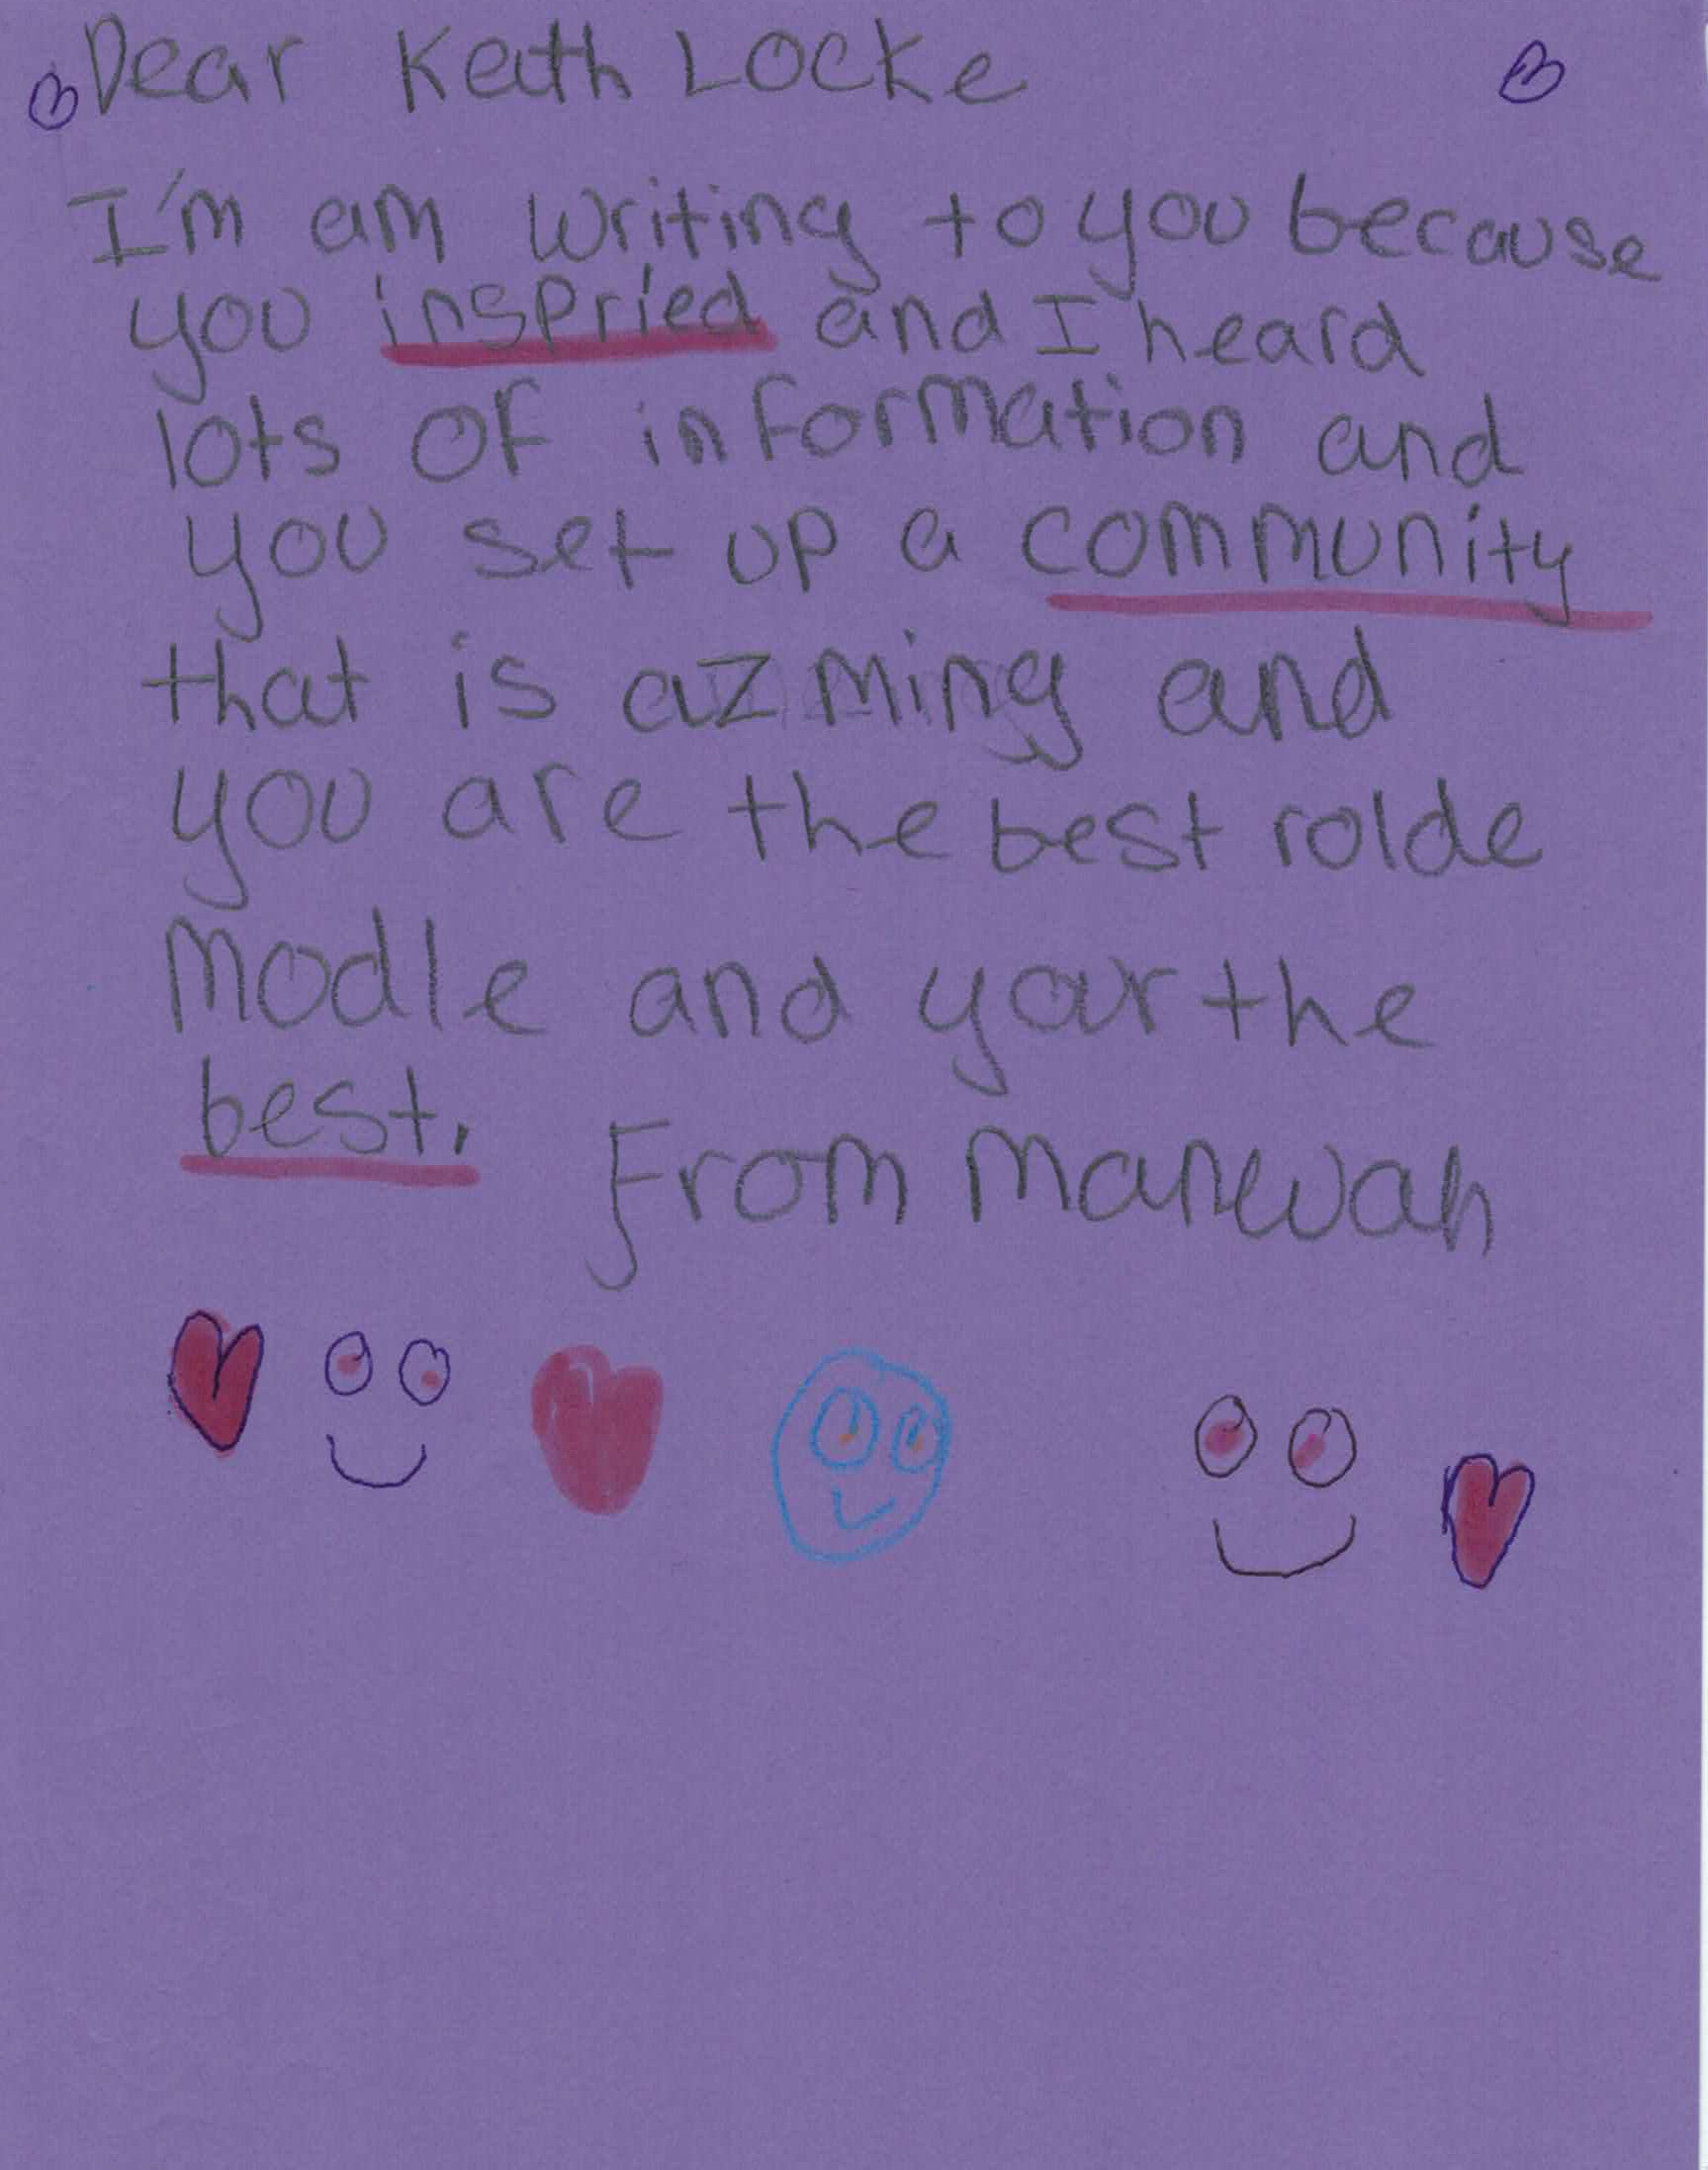 Dear Keith Locke
I'm am writing to you because
you inspried and I heard
lots of information and
you set up a community
that is azming and
you are the best rolde
modle and your the
best.
From Marwah